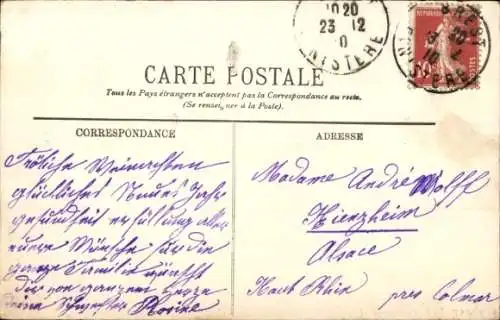 10 20
23 12
10
NISTÈRE
BREST
CARTE POSTALE
Tous les Pays étrangers n'acceptent pas la Correspondance au recto.
(Se renseigner à la Poste).
CORRESPONDANCE
ADRESSE
Fröliche Weinachten
glückliches Neues Jahr
gesundheit erfüllung aller
eurer Wünsche für die
ganze Familie wünscht
dir von ganzem herze
deine Schwester Rosine
Madame André Wolff
Kienzheim
Alsace
Haut Rhin près Colmar